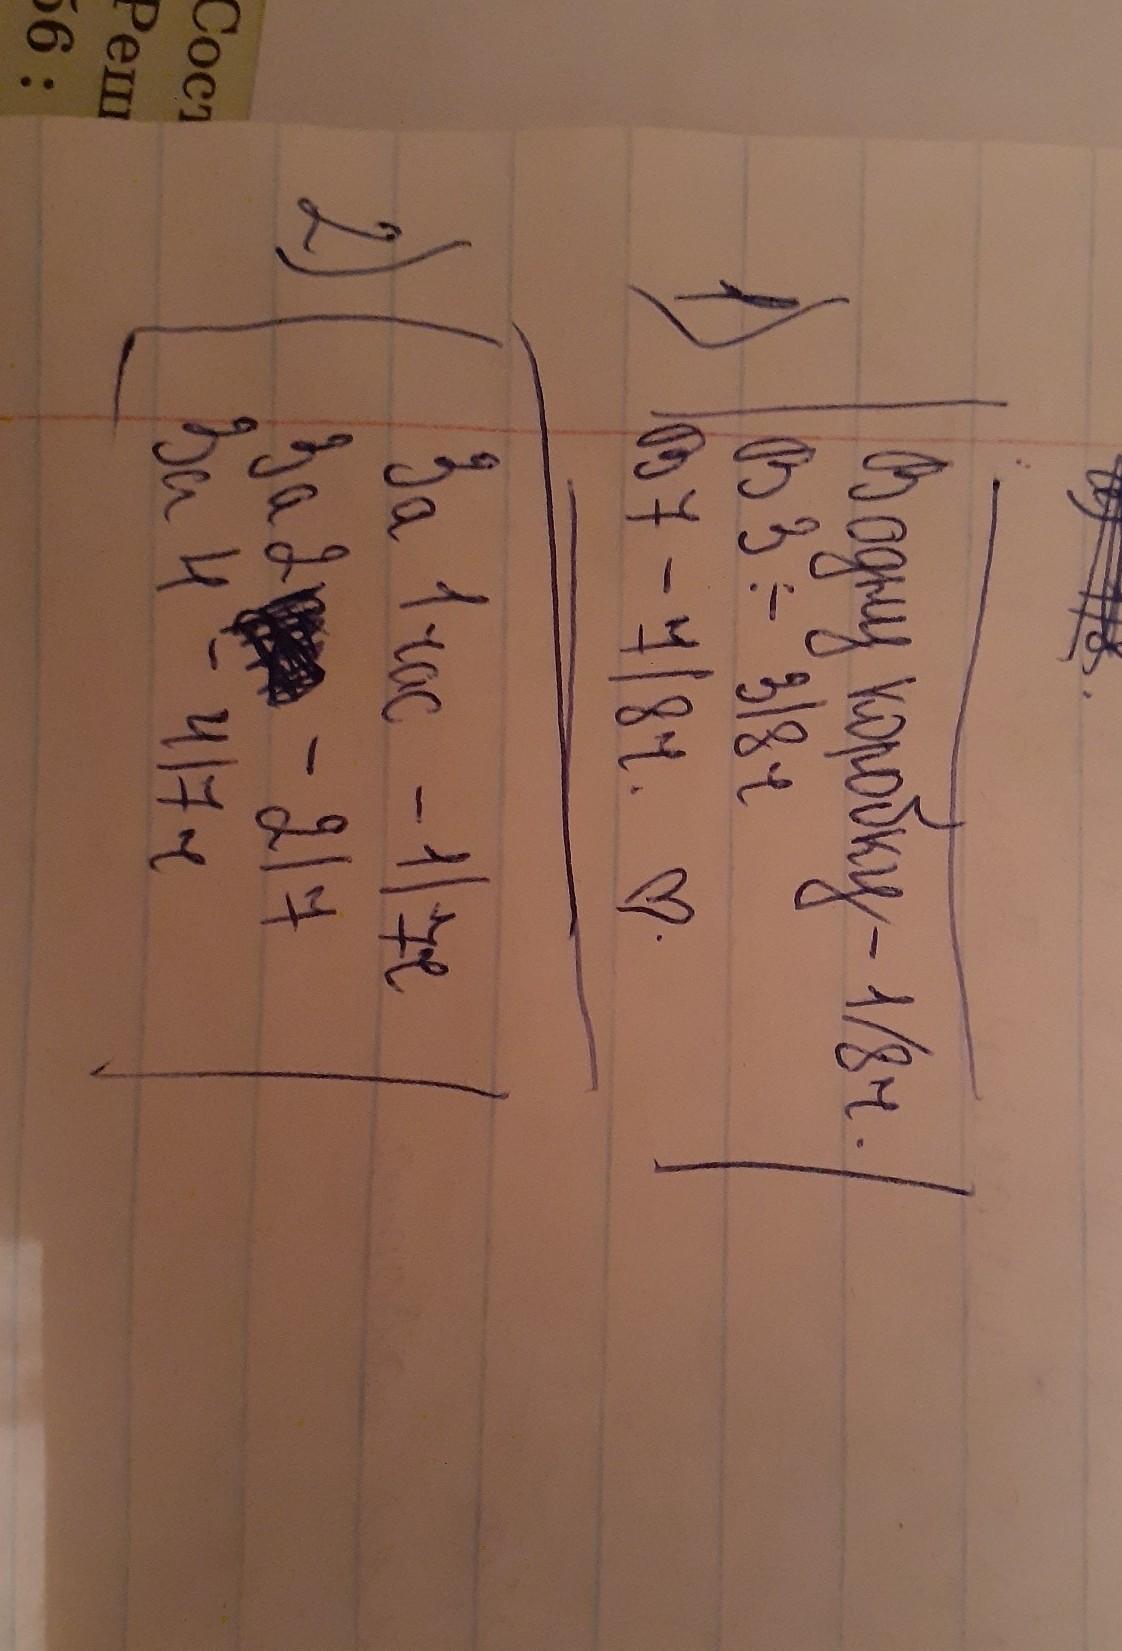 1)
В одну коробку - 1/8ч.
В 3 - 3/8ч
В 7 - 7/8ч. ♡.
2)
За 1 час - 1/7ч
За 2 - 2/7
За 4 - 4/7ч
Сост
Реш
56: